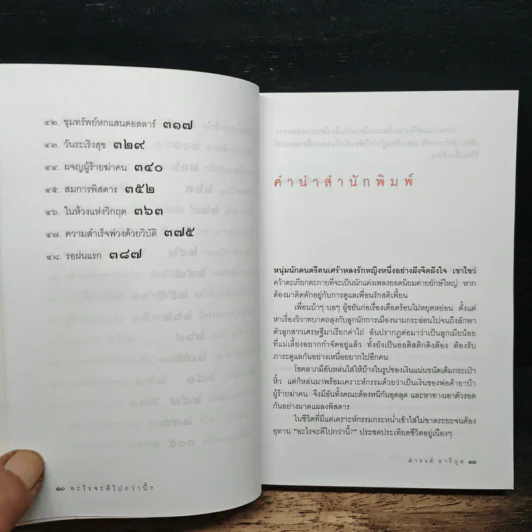 ๔๒. ขุมทรัพย์หกแสนดอลลาร์ ๓๑๗
๔๓. วันระเริงสุข ๓๒๙
๔๔. ผจญผู้ร้ายฆ่าคน ๓๔๐
๔๕. สมการพิสดาร ๓๕๒
๔๖. ในห้วงแห่งวิกฤต ๓๖๓
๔๗. ความสำเร็จพ่วงด้วยวิบัติ ๓๗๕
๔๘. รอฝนแรก ๓๘๗
๑๐ อะไรจะดีไปกว่านี้?
คำนำสำนักพิมพ์
หนุ่มนักดนตรีคนเศร้าหลงรักหญิงหนึ่งอย่างฝังจิตฝังใจ เขาไขว่
คว้าตะเกียกตะกายที่จะเป็นนักแต่งเพลงยอดนิยมค่ายยักษ์ใหญ่ หาก
ต้องมาติดตักอยู่กับการดูแลเพื่อนรักสติเพี้ยน
เพื่อนบ้าๆ บอๆ ผู้ขยันก่อเรื่องเดือดร้อนไม่หยุดหย่อน ตั้งแต่
หาเรื่องวิวาทบาดถลุงกับลูกนักการเมืองนามกระฉ่อนไปจนถึงลักพา
ตัวลูกสาวเศรษฐีมาเรียกค่าไถ่ อันปรากฏต่อมาว่าเป็นลูกเมียน้อย
ที่แม่เลี้ยงอยากกำจัดอยู่แล้ว ทั้งยังเป็นออติสติกติงต๊อง ต้องรับ
ภาระดูแลกันอย่างเหนื่อยยากไปอีกคน
โชคลาภมีอันหล่นใส่ให้บ้างในรูปของเงินแน่นขนัดเต็มกระเป๋า
หิ้ว แต่ก็หล่นมาพร้อมเคราะห์กรรมด้วยว่าเป็นเงินของพ่อค้ายาบ้า
ผู้ร้ายฆ่าคน จึงมีอันทั้งคณะต้องหนีกันอุตลุด และหาทางเอาตัวรอด
กันอย่างผาดแผลงพิสดาร
ในชีวิตที่มีแต่เคราะห์กรรมกระหน่ำเข้าใส่ไม่ขาดระยะจนต้อง
อุทาน “อะไรจะดีไปกว่านี้?” ประชดประเทียดชีวิตอยู่เนืองๆ
ดำรงค์ อารีกุล ๑๑